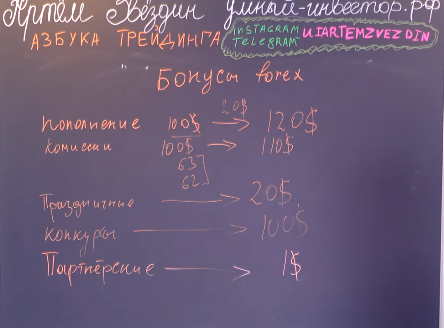 Артём Звёздин умный-инвестор.рф
АЗБУКА ТРЕЙДИНГА
INSTAGRAM
TELEGRAM
UIARTEMZVEZDIN
Бонусы forex
20$
Пополнение 100$ → 120$
Комиссии 100$ → 110$
63
62
Праздничные → 20$
Конкурсы → 100$
Партнёрские → 1$